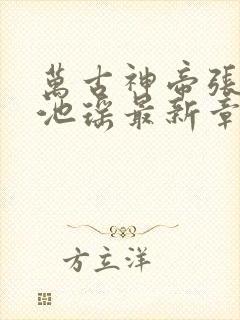 萬古神帝張
池瑤最新章
方立洋